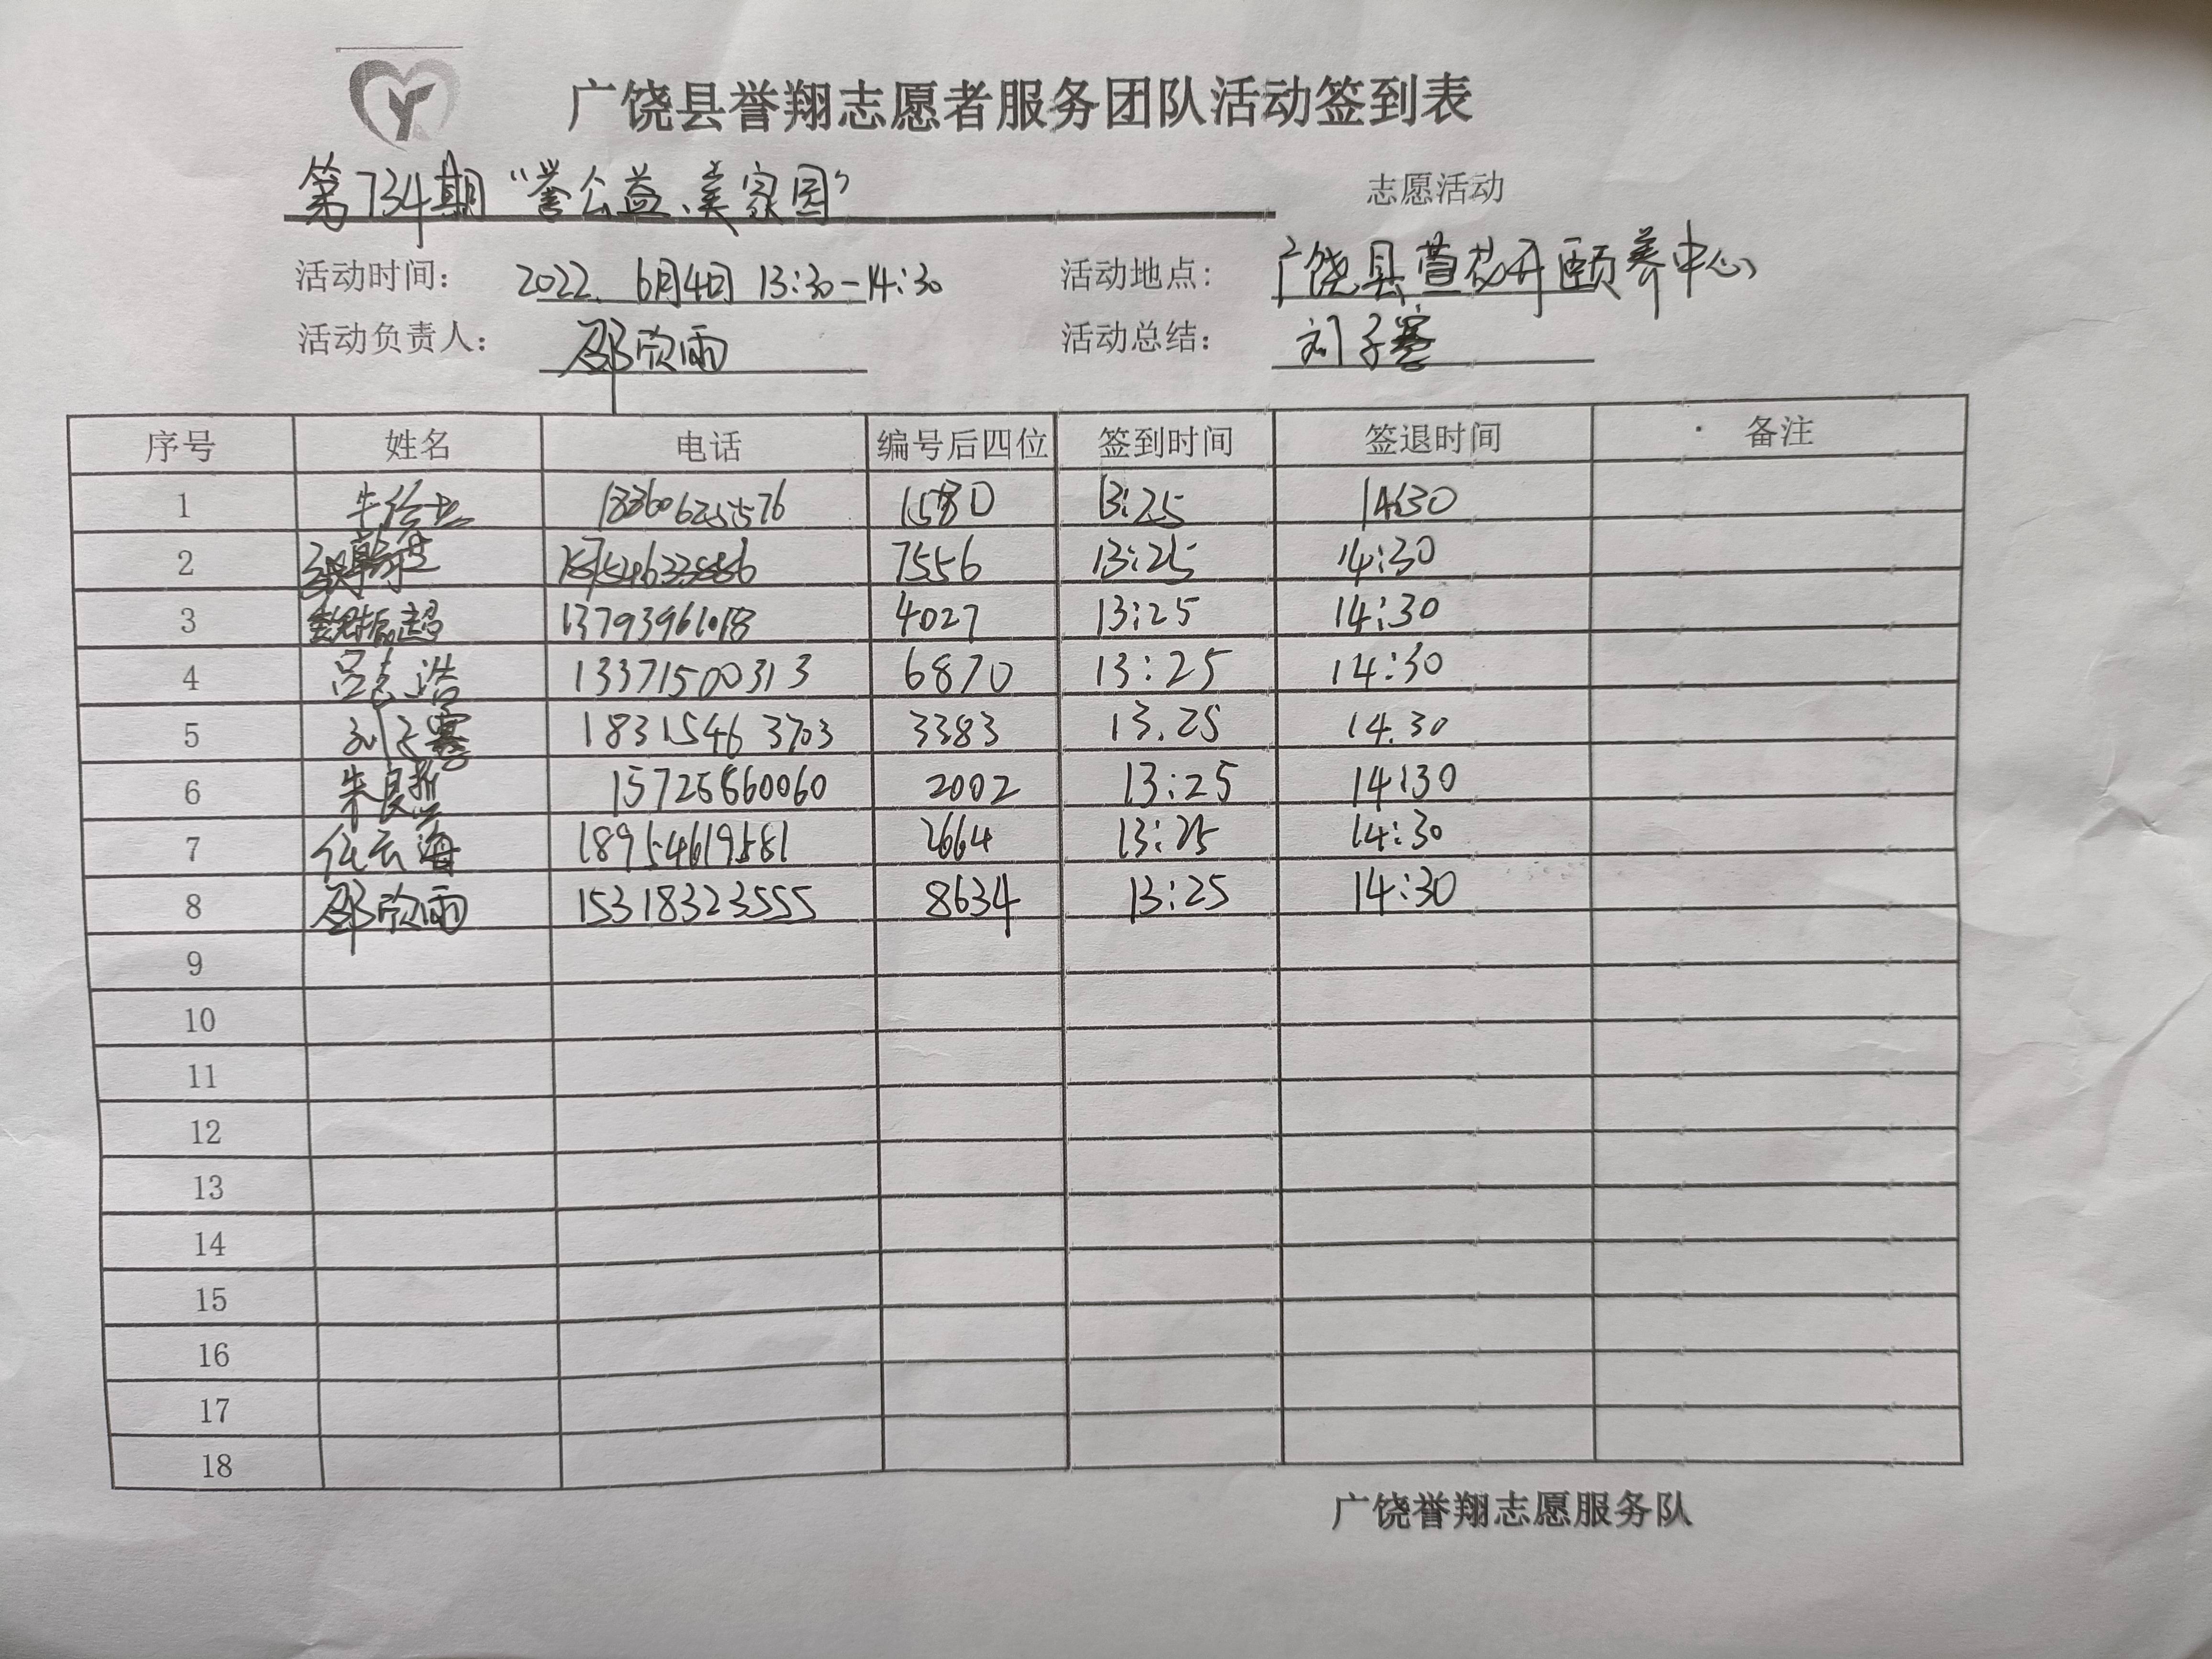 广饶县誉翔志愿者服务团队活动签到表
第734期“誉公益、美家园” 志愿活动
活动时间： 2022. 6月4日 13:30-14:30 活动地点: 广饶县萱花开颐养中心
活动负责人： 邵欣雨 活动总结： 刘子骞
序号 姓名 电话 编号后四位 签到时间 签退时间 备注
1 1580 13:25 14:30
2 7556 13:25 14:30
3 魏振超 13793961018 4027 13:25 14:30
4 吕志浩 13371500313 6870 13:25 14:30
5 刘子骞 18315463703 3383 13.25 14.30
6 朱良哲 15725860060 2002 13:25 14:30
7 任云海 18954619581 2664 13:25 14:30
8 邵欣雨 15318323555 8634 13:25 14:30
9
10
11
12
13
14
15
16
17
18
广饶誉翔志愿服务队